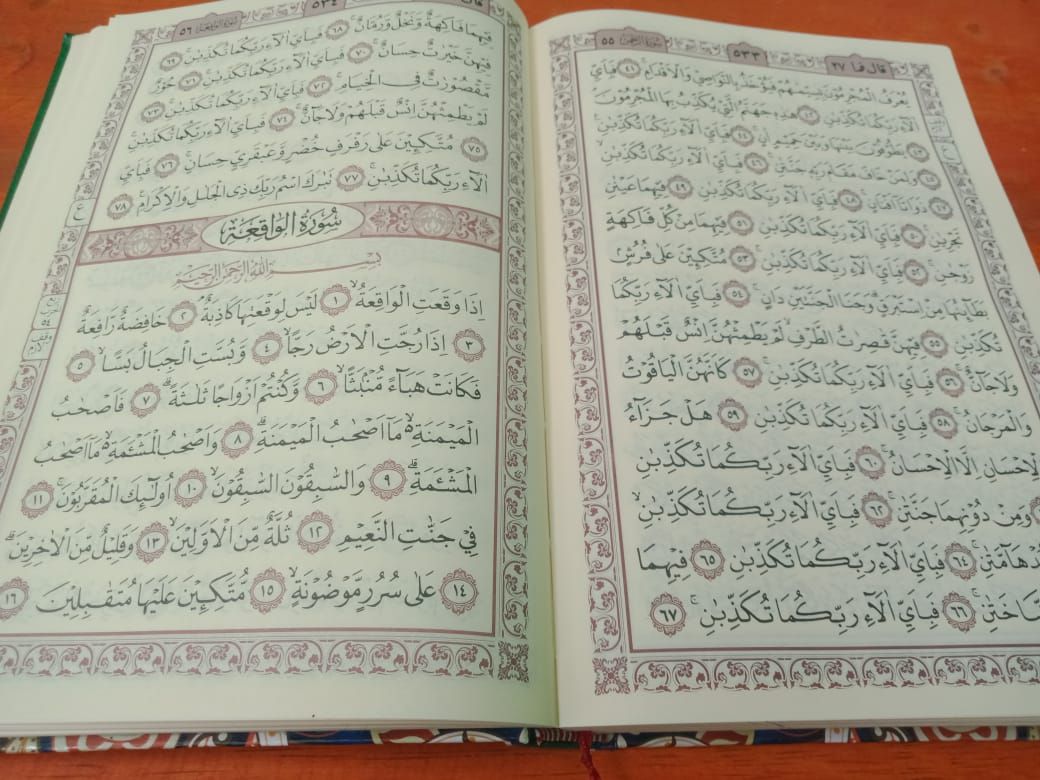 قال فما ٢٧
٥٣٣
سورة الرحمن ٥٥
يُعْرَفُ الْمُجْرِمُوْنَ بِسِيْمٰهُمْ فَيُؤْخَذُ بِالنَّوَاصِيْ وَالْاَقْدَامِۚ ٤١ فَبِاَيِّ
اٰلَاۤءِ رَبِّكُمَا تُكَذِّبٰنِ ٤٢ هٰذِهٖ جَهَنَّمُ الَّتِيْ يُكَذِّبُ بِهَا الْمُجْرِمُوْنَۘ
٤٣ يَطُوْفُوْنَ بَيْنَهَا وَبَيْنَ حَمِيْمٍ اٰنٍۚ ٤٤ فَبِاَيِّ اٰلَاۤءِ رَبِّكُمَا تُكَذِّبٰنِ
٤٥ وَلِمَنْ خَافَ مَقَامَ رَبِّهٖ جَنَّتٰنِۚ ٤٦ فَبِاَيِّ اٰلَاۤءِ رَبِّكُمَا تُكَذِّبٰنِۙ
٤٧ ذَوَاتَآ اَفْنَانٍۚ ٤٨ فَبِاَيِّ اٰلَاۤءِ رَبِّكُمَا تُكَذِّبٰنِ ٤٩ فِيْهِمَا عَيْنٰنِ
تَجْرِيٰنِۚ ٥٠ فَبِاَيِّ اٰلَاۤءِ رَبِّكُمَا تُكَذِّبٰنِ ٥١ فِيْهِمَا مِنْ كُلِّ فَاكِهَةٍ
زَوْجٰنِۚ ٥٢ فَبِاَيِّ اٰلَاۤءِ رَبِّكُمَا تُكَذِّبٰنِ ٥٣ مُتَّكِـِٕيْنَ عَلٰى فُرُشٍۢ
بَطَاۤىِٕنُهَا مِنْ اِسْتَبْرَقٍۗ وَجَنَا الْجَنَّتَيْنِ دَانٍۚ ٥٤ فَبِاَيِّ اٰلَاۤءِ رَبِّكُمَا
تُكَذِّبٰنِ ٥٥ فِيْهِنَّ قٰصِرٰتُ الطَّرْفِۙ لَمْ يَطْمِثْهُنَّ اِنْسٌ قَبْلَهُمْ
وَلَا جَاۤنٌّۚ ٥٦ فَبِاَيِّ اٰلَاۤءِ رَبِّكُمَا تُكَذِّبٰنِۚ ٥٧ كَاَنَّهُنَّ الْيَاقُوْتُ
وَالْمَرْجَانُۚ ٥٨ فَبِاَيِّ اٰلَاۤءِ رَبِّكُمَا تُكَذِّبٰنِ ٥٩ هَلْ جَزَاۤءُ
الْاِحْسَانِ اِلَّا الْاِحْسَانُۚ ٦٠ فَبِاَيِّ اٰلَاۤءِ رَبِّكُمَا تُكَذِّبٰنِ
وَمِنْ دُوْنِهِمَا جَنَّتٰنِۚ ٦٢ فَبِاَيِّ اٰلَاۤءِ رَبِّكُمَا تُكَذِّبٰنِۙ
مُدْهَاۤمَّتٰنِۚ ٦٤ فَبِاَيِّ اٰلَاۤءِ رَبِّكُمَا تُكَذِّبٰنِۚ ٦٥ فِيْهِمَا
نَضَّاخَتٰنِۚ ٦٦ فَبِاَيِّ اٰلَاۤءِ رَبِّكُمَا تُكَذِّبٰنِۚ ٦٧
قال
٥٣٤
سورة الواقعة ٥٦
فِيْهِمَا فَاكِهَةٌ وَّنَخْلٌ وَّرُمَّانٌۚ ٦٨ فَبِاَيِّ اٰلَاۤءِ رَبِّكُمَا تُكَذِّبٰنِۚ ٦٩
فِيْهِنَّ خَيْرٰتٌ حِسَانٌۚ ٧٠ فَبِاَيِّ اٰلَاۤءِ رَبِّكُمَا تُكَذِّبٰنِۚ ٧١ حُوْرٌ
مَّقْصُوْرٰتٌ فِى الْخِيَامِۚ ٧٢ فَبِاَيِّ اٰلَاۤءِ رَبِّكُمَا تُكَذِّبٰنِۚ ٧٣
لَمْ يَطْمِثْهُنَّ اِنْسٌ قَبْلَهُمْ وَلَا جَاۤنٌّۚ ٧٤ فَبِاَيِّ اٰلَاۤءِ رَبِّكُمَا تُكَذِّبٰنِۚ
٧٥ مُتَّكِـِٕيْنَ عَلٰى رَفْرَفٍ خُضْرٍ وَّعَبْقَرِيٍّ حِسَانٍۚ ٧٦ فَبِاَيِّ
اٰلَاۤءِ رَبِّكُمَا تُكَذِّبٰنِۚ ٧٧ تَبٰرَكَ اسْمُ رَبِّكَ ذِى الْجَلٰلِ وَالْاِكْرَامِ ٧٨
سُوْرَةُ الْوَاقِعَةِ
بِسْمِ اللّٰهِ الرَّحْمٰنِ الرَّحِيْمِ
اِذَا وَقَعَتِ الْوَاقِعَةُۙ ١ لَيْسَ لِوَقْعَتِهَا كَاذِبَةٌۘ ٢ خَافِضَةٌ رَّافِعَةٌۙ
٣ اِذَا رُجَّتِ الْاَرْضُ رَجًّاۙ ٤ وَّبُسَّتِ الْجِبَالُ بَسًّاۙ ٥
فَكَانَتْ هَبَاۤءً مُّنْۢبَثًّاۙ ٦ وَّكُنْتُمْ اَزْوَاجًا ثَلٰثَةًۗ ٧ فَاَصْحٰبُ
الْمَيْمَنَةِ ەۙ مَآ اَصْحٰبُ الْمَيْمَنَةِۗ ٨ وَاَصْحٰبُ الْمَشْـَٔمَةِ ەۙ مَآ اَصْحٰبُ
الْمَشْـَٔمَةِۗ ٩ وَالسّٰبِقُوْنَ السّٰبِقُوْنَۙ ١٠ اُولٰۤىِٕكَ الْمُقَرَّبُوْنَۚ ١١
فِيْ جَنّٰتِ النَّعِيْمِ ١٢ ثُلَّةٌ مِّنَ الْاَوَّلِيْنَۙ ١٣ وَقَلِيْلٌ مِّنَ الْاٰخِرِيْنَۗ
١٤ عَلٰى سُرُرٍ مَّوْضُوْنَةٍۙ ١٥ مُّتَّكِـِٕيْنَ عَلَيْهَا مُتَقٰبِلِيْنَ ١٦